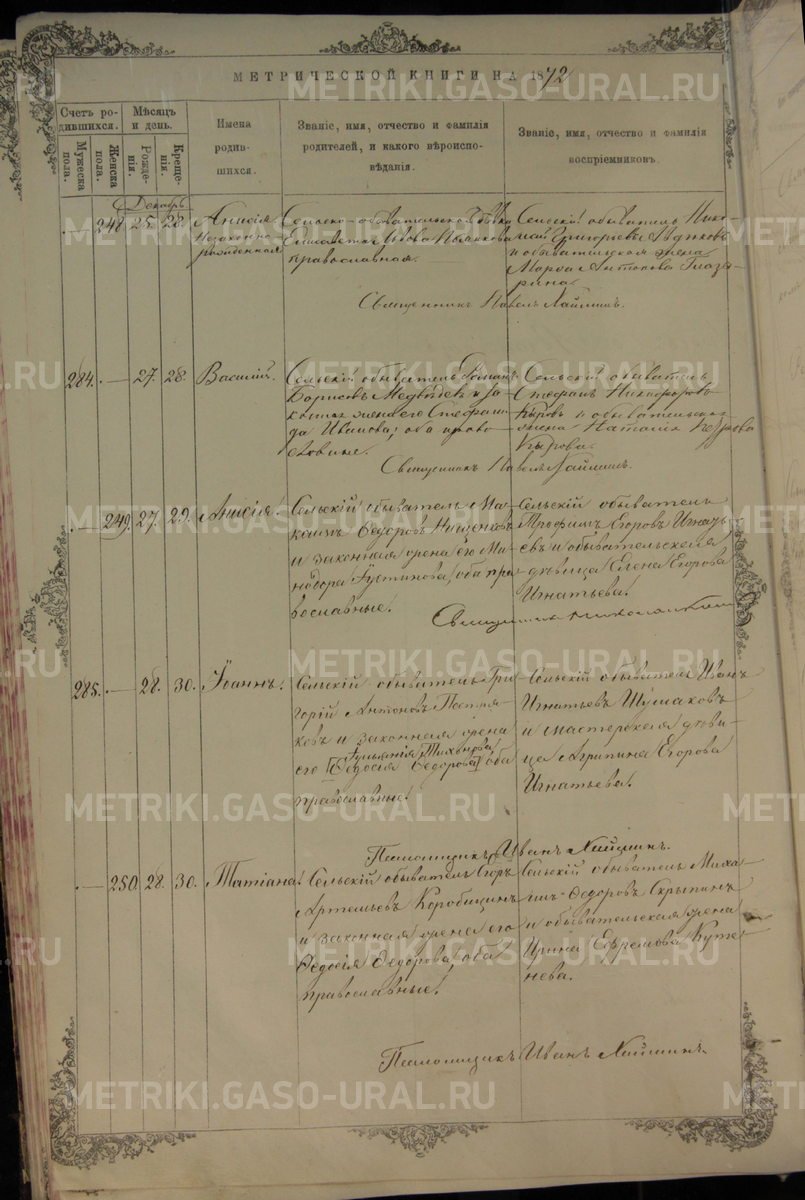 МЕТРИЧЕСКОЙ КНИГИ НА 1872
Счетъ ро-
дившихся.
Мужеска
пола.
Женска
пола.
Мѣсяцъ
и день.
Рожде-
нія.
Креще-
нія.
Имена
родив-
шихся.
Званіе, имя, отчество и фамилія
родителей, и какого вѣроиспо-
вѣданія.
Званіе, имя, отчество и фамилія
воспріемниковъ.
Декабрь
248 25. 28.
Анисія
Незаконно-
рожденная
Елисавета Львова
православная.
Сельскій обыватель Нико-
лай Григорьевъ
и обывательская жена
Марѳа Антонова Глазы-
рина.
Священникъ Павелъ Хаймин.
284. 27. 28.
Василій.
Сельскій обыватель Романъ
Борисовъ Медвѣдевъ и за-
конная жена его Стефани-
да Иванова; оба право-
славные.
Сельскій обыватель
Стефанъ Никифоровъ
Кыровъ и обывательская
жена Наталія Петрова
Кырова.
Священникъ Павелъ Хаймин.
249. 27. 29.
Анисія.
Сельскій обыватель Ма-
ксимъ Ѳедоровъ
и законная жена его Ми-
нодора Іустинова, оба пра-
вославные.
Сельскій обыватель
Трофимъ Егоровъ Игнать-
евъ и обывательская
дѣвица Елена Егорова
Игнатьева.
Священникъ
285. 28. 30.
Іоаннъ.
Сельскій обыватель Гри-
горій Антоновъ
ковъ и законная жена
Тихонова
его [Ѳедосія Ѳедорова] оба
православные.
Сельскій обыватель Иванъ
Игнатьевъ Шумаковъ
и мастерская дѣви-
ца Агрипина Егорова
Игнатьева.
Помощникъ Иванъ Хайминъ.
250. 28. 30.
Татіана.
Сельскій обыватель Егоръ
Артемьевъ Коробицинъ
и законная жена его
Ѳедосія Ѳедорова, оба
православные.
Сельскій обыватель Миха-
илъ Ѳедоровъ Скрыпинъ
и обывательская жена
Ирина Ефремова Куте-
нева.
Помощникъ Иванъ Хайминъ
METRIKI.GASO-URAL.RU